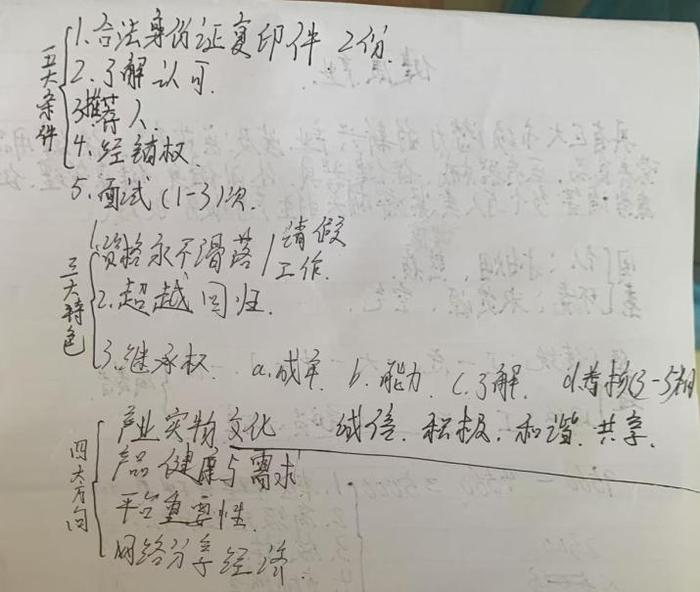 五大条件
1.合法身份证复印件 2份.
2.了解认可.
3推荐人.
4.经销权.
5.面试(1-3)次.
三大特色
1.资格永不滑落/请假
工作.
2.超越回归.
3.继承权. a.成年 b.能力. c.了解. d考核(3-5)期
四大方向
产业实物文化 诚信.积极.和谐.共享.
产品健康与需求
平台重要性.
网络分享经济.